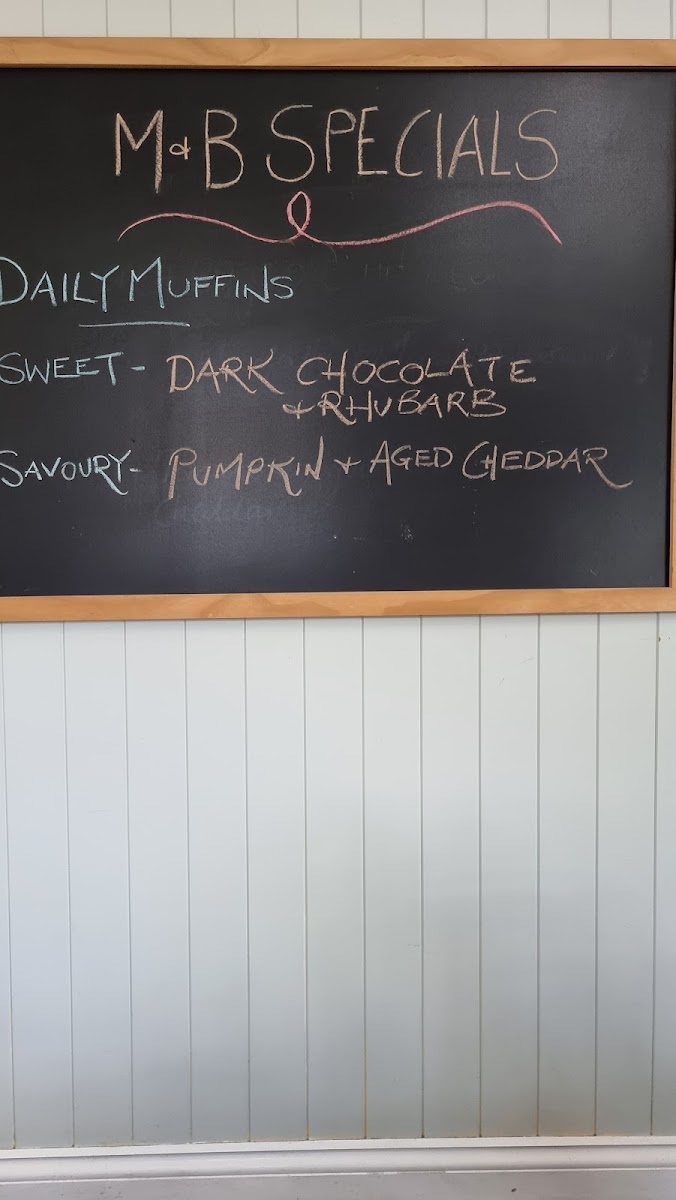 M & B SPECIALS
DAILY MUFFINS
SWEET - DARK CHOCOLATE
& RHUBARB
SAVOURY - PUMPKIN + AGED CHEDDAR